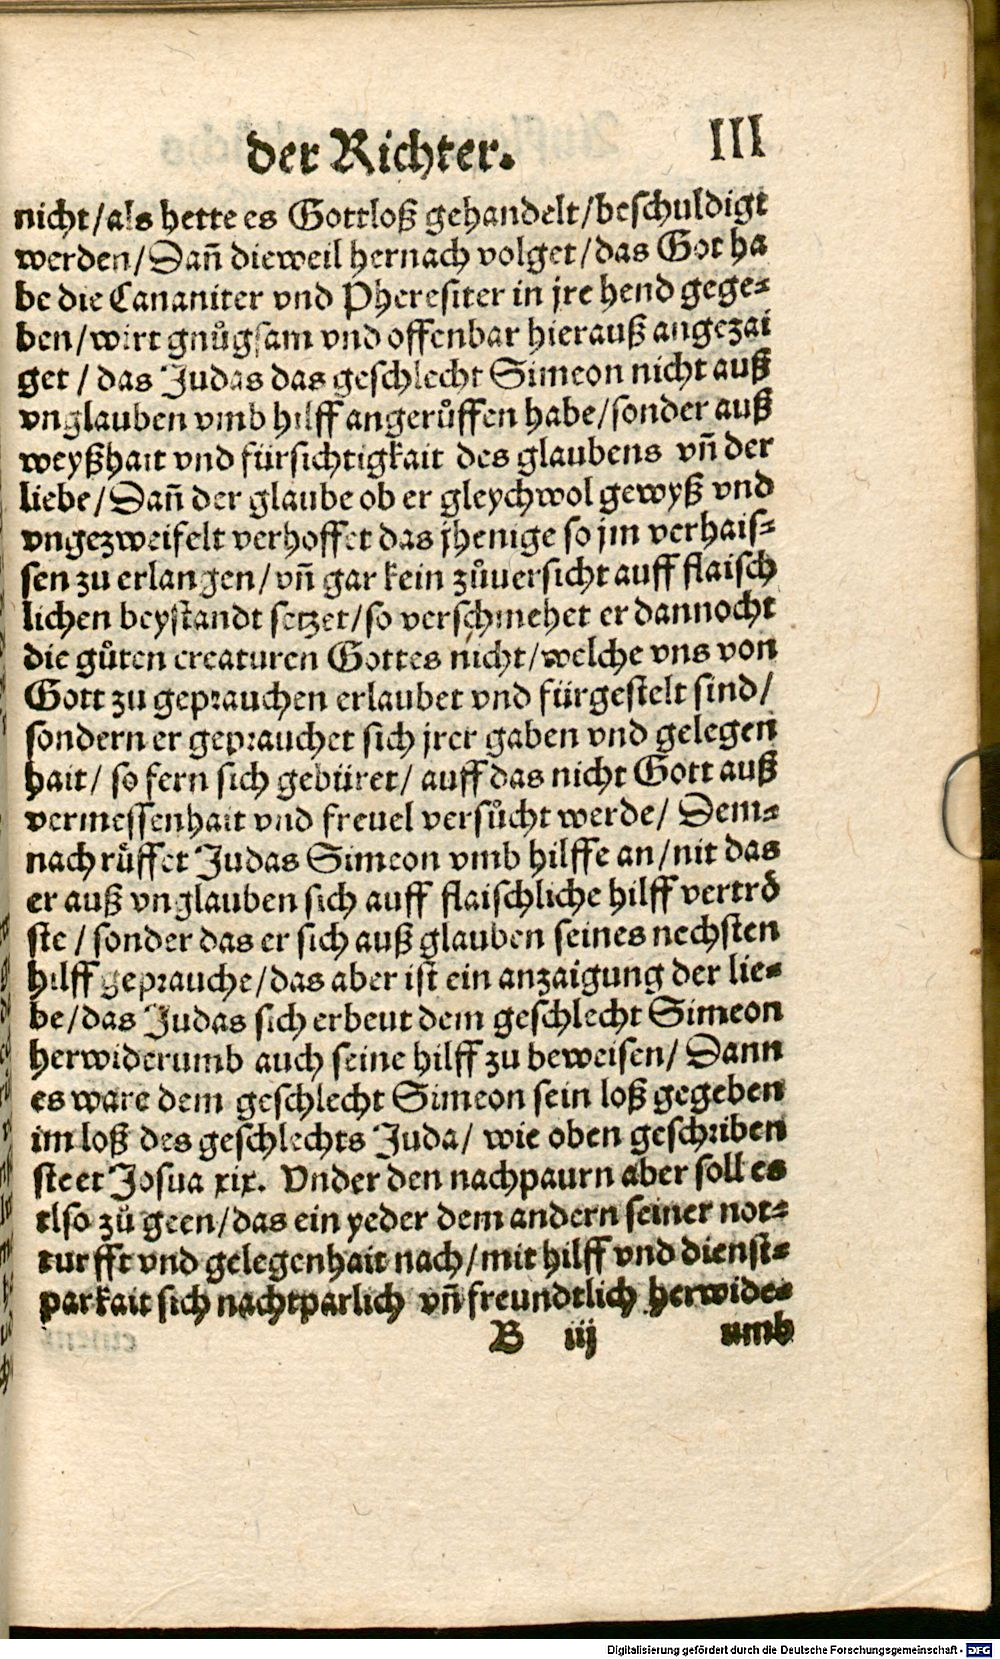 der Richter. III
nicht/als hette es Gottloß gehandelt/beschuldigt
werden/Dañ dieweil hernach volget/das Got ha
be die Cananiter vnd Pheresiter in jre hend gege-
ben/wirt gnůgsam vnd offenbar hierauß angezai
get / das Judas das geschlecht Simeon nicht auß
vnglauben vmb hilff angerůffen habe/sonder auß
weyßhait vnd fürsichtigkait des glaubens vñ der
liebe/Dañ der glaube ob er gleychwol gewyß vnd
vngezweifelt verhoffet das jhenige so jm verhais-
sen zu erlangen/vñ gar kein zůuersicht auff flaisch
lichen beystandt setzet/so verschmehet er dannocht
die gůten creaturen Gottes nicht/welche vns von
Gott zu geprauchen erlaubet vnd fürgestelt sind/
sondern er geprauchet sich jrer gaben vnd gelegen
hait/ so fern sich gebüret/ auff das nicht Gott auß
vermessenhait vnd freuel versůcht werde/ Dem-
nach růffet Judas Simeon vmb hilffe an/nit das
er auß vnglauben sich auff flaischliche hilff vertrö
ste / sonder das er sich auß glauben seines nechsten
hilff geprauche/das aber ist ein anzaigung der lie-
be/das Judas sich erbeut dem geschlecht Simeon
herwiderumb auch seine hilff zu beweisen/ Dann
es ware dem geschlecht Simeon sein loß gegeben
im loß des geschlechts Juda/ wie oben geschriben
steet Josua xix. Vnder den nachpaurn aber soll es
also zů geen/das ein yeder dem andern seiner not-
turfft vnd gelegenhait nach/mit hilff vnd dienst-
parkait sich nachtparlich vñ freundtlich herwide-
B iij umb
Digitalisierung gefördert durch die Deutsche Forschungsgemeinschaft - DFG